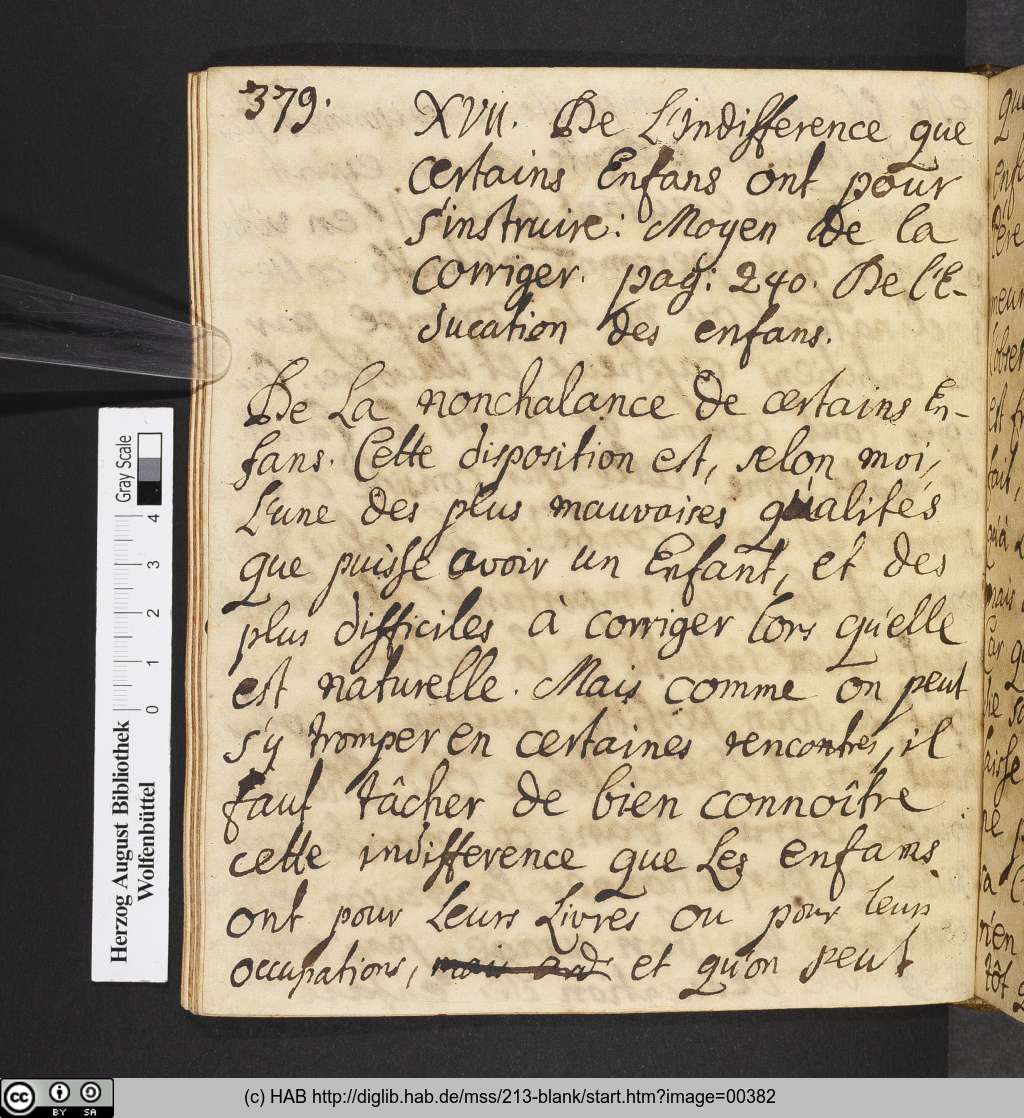 379.
XVII. De L'indifference que
certains Enfans ont pour
s'instruire: Moyen de la
corriger. pag: 240. De l'E-
ducation des enfans.
De La nonchalance de certains En-
fans. Cette disposition est, selon moi,
L'une des plus mauvaises qualités
que puisse avoir un Enfant, et des
plus difficiles à corriger lors qu'elle
est naturelle. Mais comme on peut
s'y tromper en certaines rencontres, il
faut tâcher de bien connoître
cette indifference que Les enfans
ont pour Leurs Livres ou pour leurs
occupations, et qu'on peut
Gray Scale
4
3
2
1
0
Herzog August Bibliothek
Wolfenbüttel
cc BY SA
(c) HAB http://diglib.hab.de/mss/213-blank/start.htm?image=00382